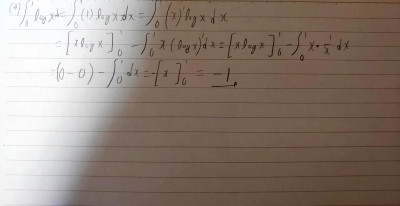 (9) ∫₀¹ log x dx = ∫₀¹ (1) log x dx = ∫₀¹ (x)' log x dx
= [x log x]₀¹ - ∫₀¹ x · (log x)' dx = [x log x]₀¹ - ∫₀¹ x · 1/x dx
= (0 - 0) - ∫₀¹ dx = -[x]₀¹ = -1